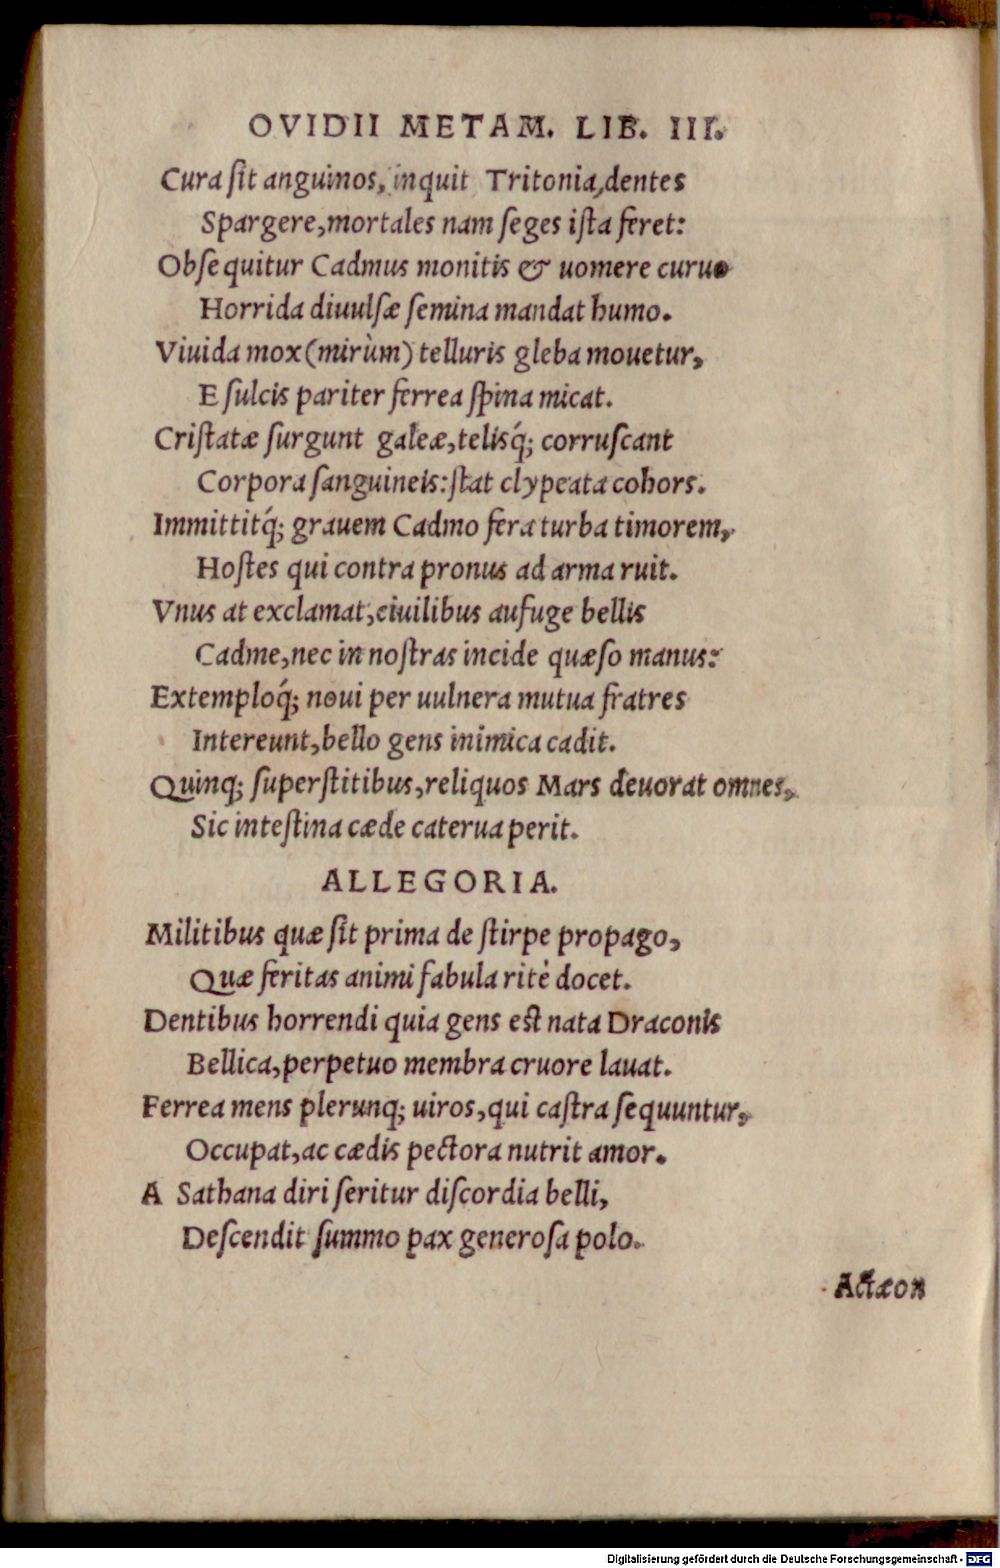 OVIDII METAM. LIB. III.
Cura ſit anguinos, inquit Tritonia, dentes
Spargere, mortales nam ſeges iſta feret:
Obſequitur Cadmus monitis & uomere curuo
Horrida diuulſæ ſemina mandat humo.
Viuida mox (mirùm) telluris gleba mouetur,
E ſulcis pariter ferrea ſpina micat.
Criſtatæ ſurgunt galeæ, telisq́; corruſcant
Corpora ſanguineis: ſtat clypeata cohors.
Immittitq́; grauem Cadmo fera turba timorem,
Hoſtes qui contra pronus ad arma ruit.
Vnus at exclamat, ciuilibus aufuge bellis
Cadme, nec in noſtras incide quæſo manus:
Extemploq́; noui per uulnera mutua fratres
Intereunt, bello gens inimica cadit.
Quinq; ſuperſtitibus, reliquos Mars deuorat omnes,
Sic inteſtina cæde caterua perit.
ALLEGORIA.
Militibus quæ ſit prima de ſtirpe propago,
Quæ feritas animi fabula ritè docet.
Dentibus horrendi quia gens eſt nata Draconis
Bellica, perpetuo membra cruore lauat.
Ferrea mens plerunq; uiros, qui caſtra ſequuntur,
Occupat, ac cædis pectora nutrit amor.
A Sathana diri ſeritur diſcordia belli,
Deſcendit ſummo pax generoſa polo.
Actæon
Digitalisierung gefördert durch die Deutsche Forschungsgemeinschaft - DFG